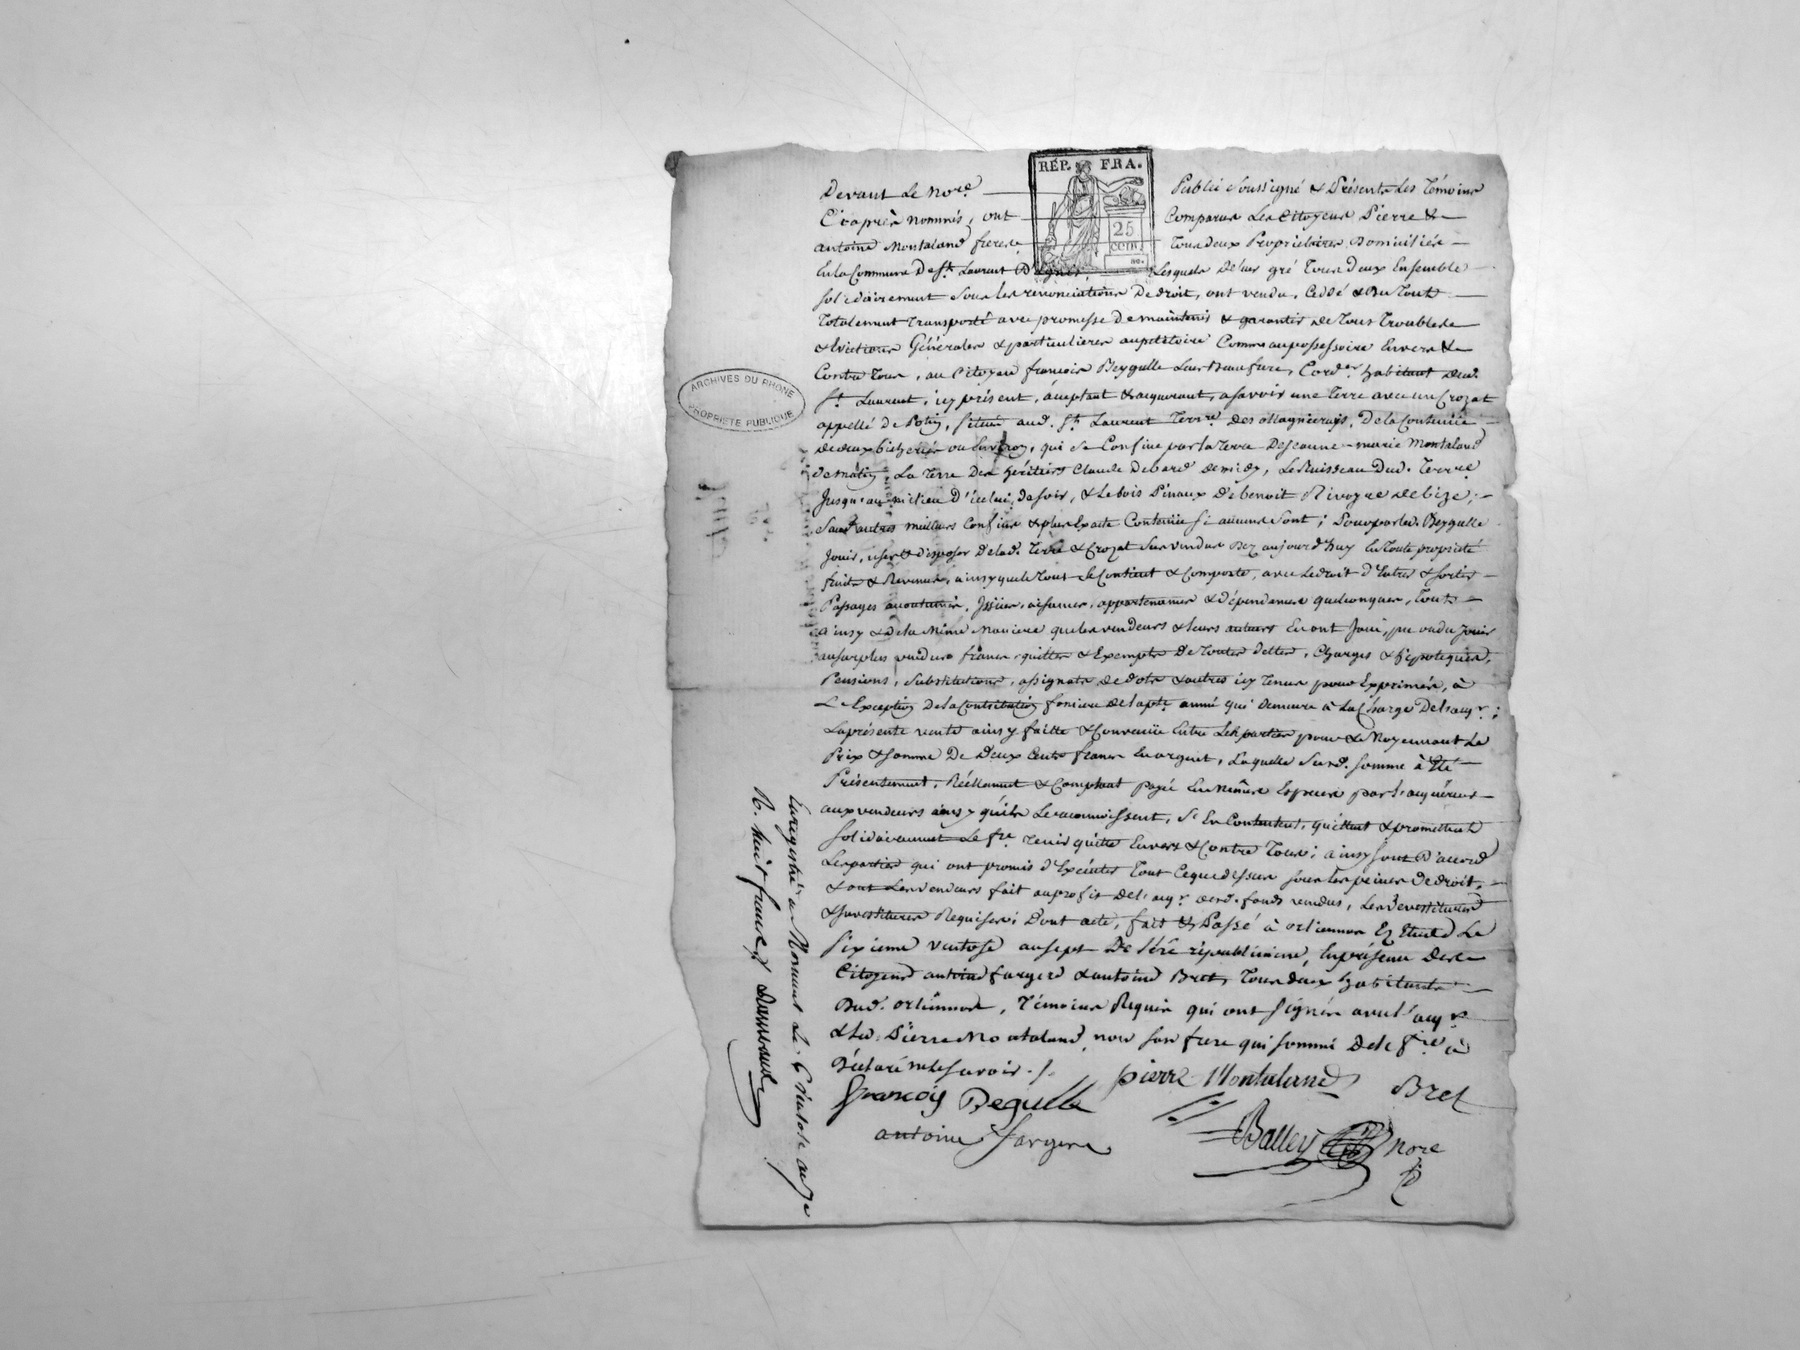 RÉP. FRA.
25
CETM.
Devant Le Nore. Public Soussigné & Présents Les Témoins
Ciaprès nommés, ont Comparus Les Citoyens Pierre &
antoine Montaland freres Tous deux Propriétaires Domiciliés
En la Commune De St. Laurent D'agnis, Lesquels De leur gré Tous Deux Ensemble
solidairement Sous les renonciations De droit, ont vendu, Ceddé & Du Tout
Totalement Transporté avec promesse De maintenir & garantir de Tous Troubles
& Evictions Générales & particulieres au petitoire Comme au possessoire Envers &
Contre Tous, au Citoyen françois Beygulle Leur Beaufrere, Corder. habitant dud.
St. Laurent, icy présent, acceptant & acquerant, a savoir une Terre avec un Crozat
appellé de Potis, Située aud. St. Laurent Terrre. Des Magnierays, De la Contenüe
de deux bicherées ou Environ, qui Se Confine par la Terre De Jeanne-marie Montaland
de matin, La Terre Des héritiers Claude De midy, Le Ruisseau Dud. Terrre.
Jusqu'au milieu d'icelui de soir, & Le bois Pinaux De benoit Rivoyre de bize;
Sauf autres meilleurs Confins & plus Exacte Contenüe Si aucuns Sont; Pour par led. Beygulle
Jouir, user & Disposer De lad. Terre & Crozat Sus vendus Dez aujourd'huy En Toute propriété
fruits & Revenus, ainsy que le Tout Se Contient & Comporte, avec Le droit d'Entrée & Sortie
Passages accoutumés, Issües, aisances, appartenances & Dépendances quelconques, Tout
ainsy & De la Même Maniere que les vendeurs & leurs auteurs En ont Joui, pu ou du Jouir
au surplus vendus francs, quittes & Exempts De Toutes Dettes, Charges & hipoteques,
Pensions, Substitutions, assignats de dots & autres icy Tenus pour Exprimés, à
L'Exception De la Contribution fonciere De la pte. année qui Demeure à La Charge De l'aqr.;
La présente vente ainsy faitte & Convenüe Entre Les parties pour & Moyennant Le
Prix & Somme De Deux Cents francs En argent, Laquelle Susd. Somme à Eté
Présentement, Réellement & Comptant payé En Même Especes par l'acquéreur
aux vendeurs ainsy qu'ils Le reconnoissent, S'En Contentent, quittent & promettent
Solidairement Le fre. Tenir quitte Envers & Contre Tous; ainsy Sont D'accord
Les parties qui ont promis d'Exécuter Tout Ceque dessus Sous Les peines De droit,
& ont Les vendeurs fait au profit De l'aqr. desd. fonds vendus, Les Devestitures
& Investitures Requises; Dont acte, fait & Passé à orlienas Ez Etude Le
Sixieme ventose an sept De l'ère républicaine, En présence Des
Citoyens antoine fargere & antoine Bret, Tous deux habitants
Dud. orlienas, Témoins Requis qui ont Signés avec l'aqr.
& Led. Pierre Montaland, non Son frere qui Sommé De le fre. à
Déclaré ne le Savoir ./.
pierre Montaland Bret
françois Begulle
antoine fargere
Balley Nore
Enregistré à Mornant Le 6 Ventose an 7e
R. huit francs
ARCHIVES DU RHONE
PROPRIETE PUBLIQUE